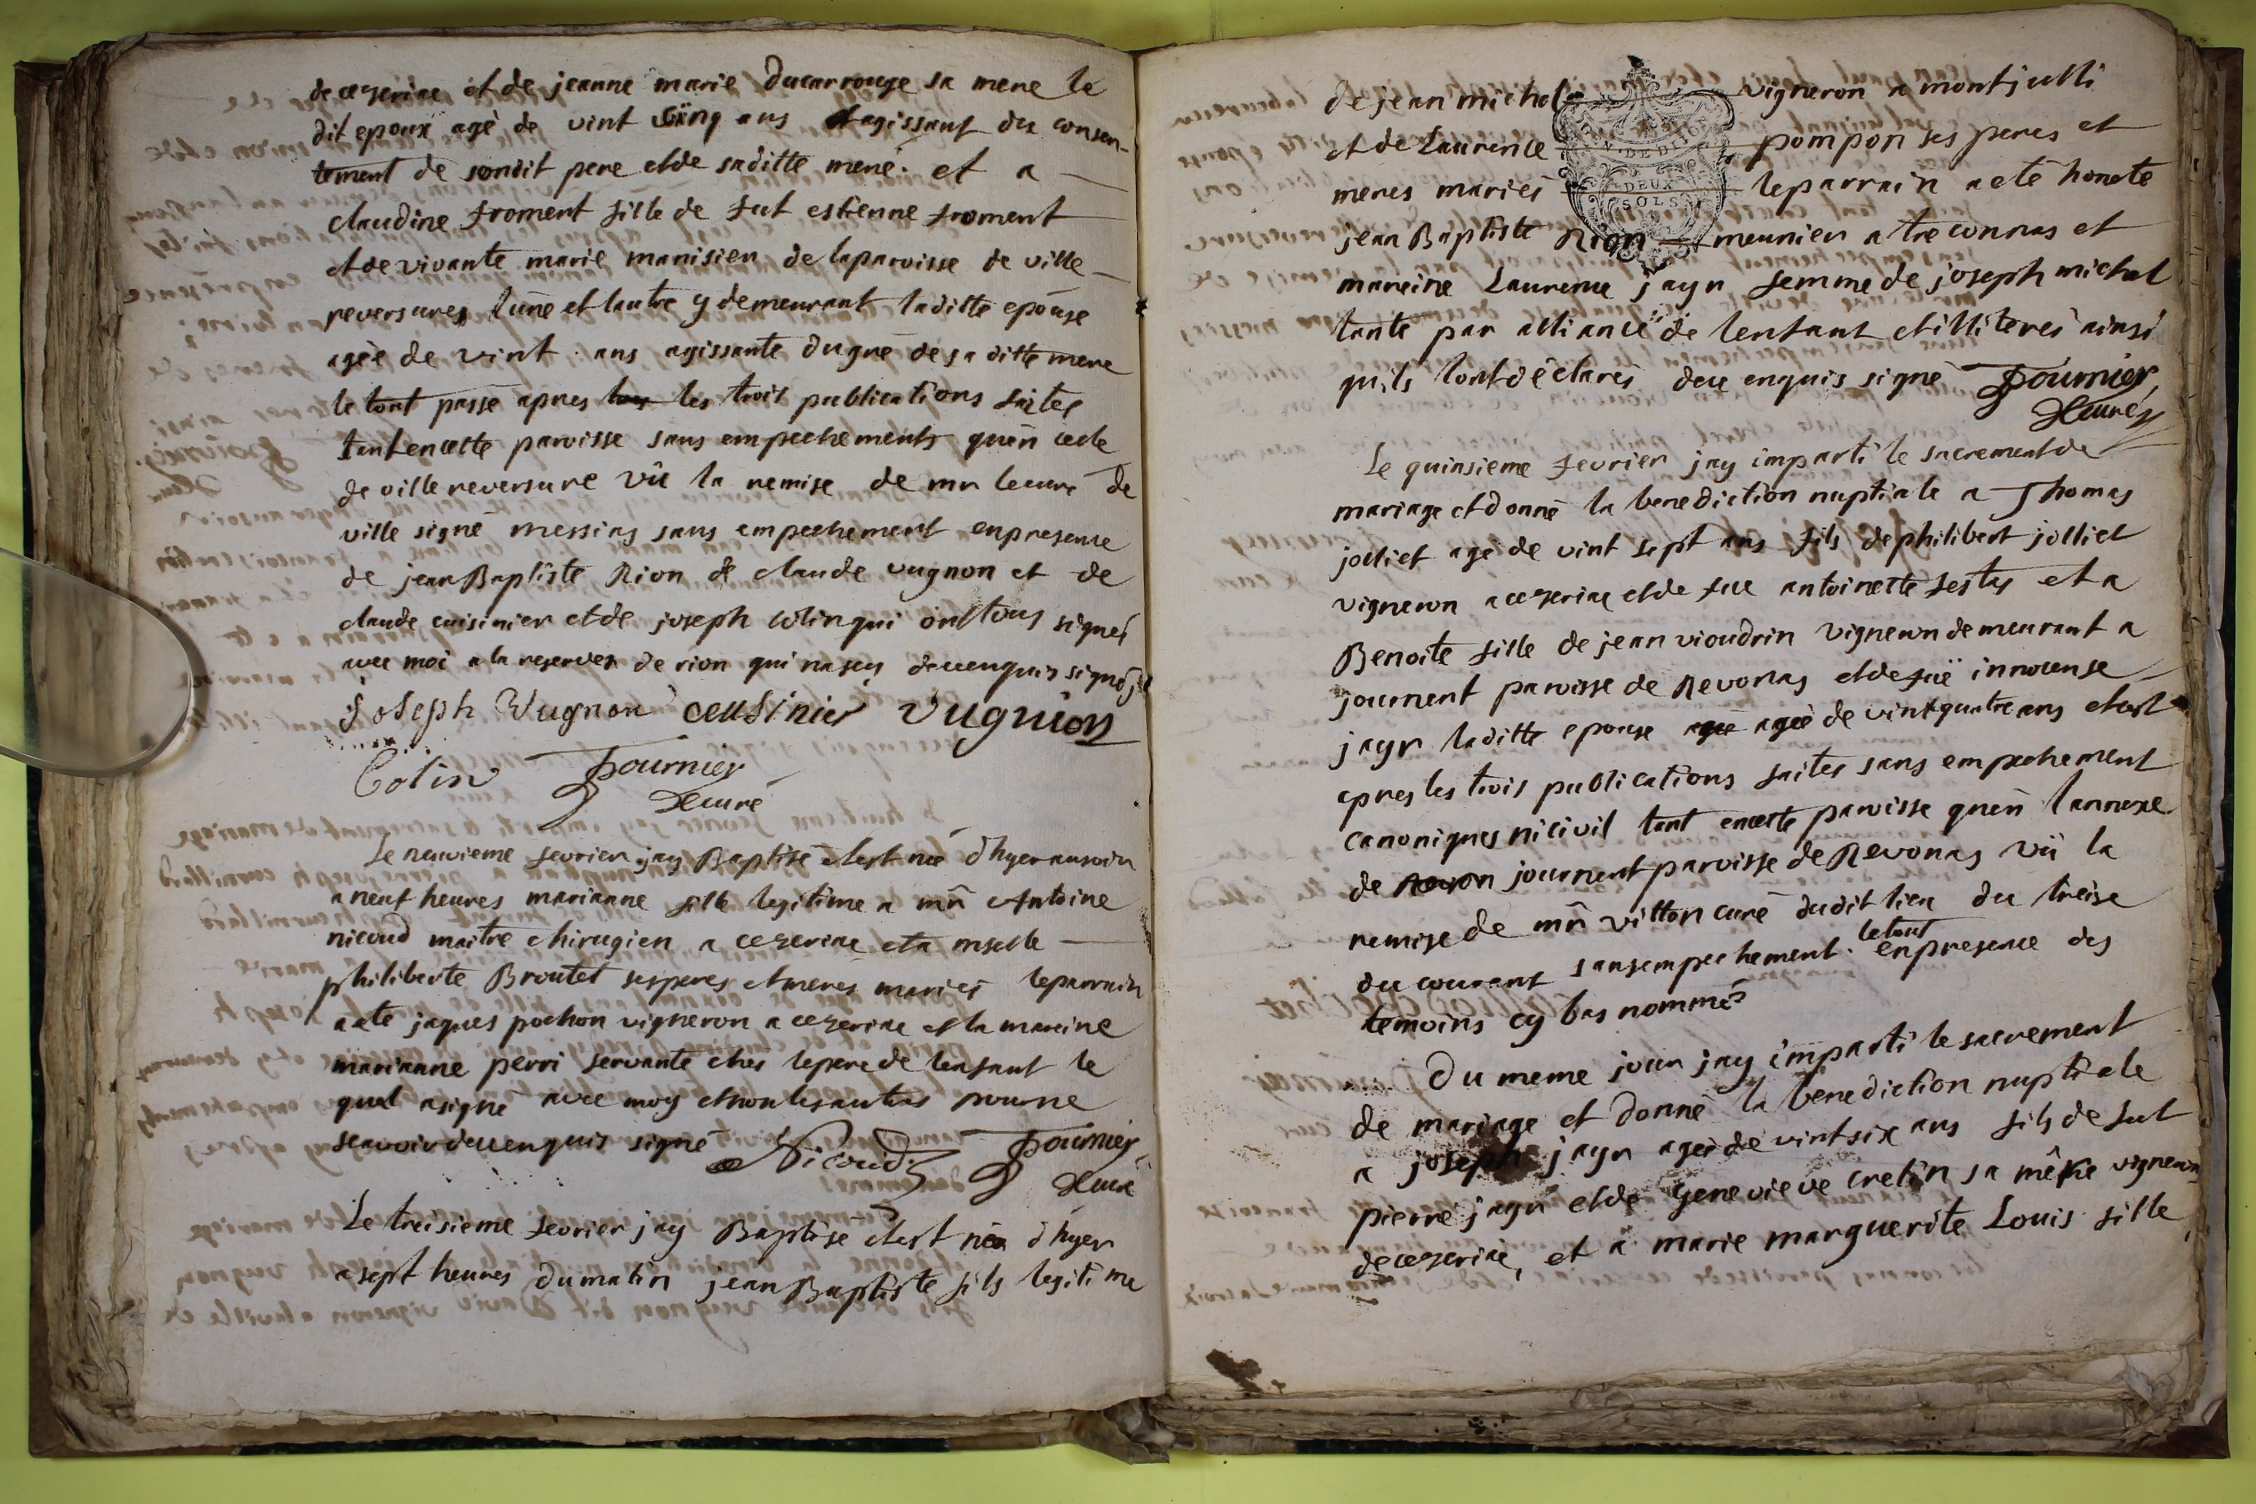 de cezeriae et de jeanne marie Ducarrouge sa mere le
dit epoux agé de vint cinq ans et agissant du consen-
tement de sondit pere et de saditte mere. et a
claudine froment fille de fut estienne froment
et de vivante marie manisien de la paroisse de ville
reversures lune et lautre y demeurant laditte epouse
agée de vint ans agissante dugré de sa ditte mere
le tout passé apres les trois publications faites
tant en cette paroisse sans empechements quen celle
de ville reversure vû la remise de mr le curé de
ville signé messias sans empechement en presence
de jean Baptiste Rion de claude vugnon et de
claude cuisinier et de joseph colin qui ont tous signés
avec moi a la reserve de rion qui na sçu de ce enquis signé
Joseph Vugnon cuisinier vugnion
Colin fournier
curé
Le neuvieme fevrier jay Baptisé et est née d'hyer au soir
a neuf heures marianne fille legitime a mr Antoine
nicoud maitre chirugien a cezeriae et a mselle
philiberte Broutet ses peres et meres mariés le parrain
a ete jaques pochon vigneron a cezeriae et la mareine
marianne perri servante chés le pere de lenfant le
quel a signé avec moy et non les autres pour ne
scavoir de ce enquis signé Nicoud fournier
curé
Le treisieme fevrier jay Baptisé et est né d'hyer
a sept heures du matin jean Baptiste fils legitime
de jean michel vigneron a montjulli
et de Laurence pompon ses peres et
meres mariés le parrain a eté honete
DEUX
SOLS
jean Baptiste Rion meunier a treconnas et
mareine Laurence jayr femme de joseph michel
tante par alliance de lenfant et illiterés ainsi
quils lont déclarés de ce enquis signé fournier
curé
Le quinsieme fevrier jay imparti le sacrement de
mariage et donné la benediction nuptiale a Thomas
jolliet agé de vint sept ans fils de philibert jolliet
vigneron a cezeriae et de fue antoinette festas et a
Benoite fille de jean vioudrin vigneron demeurant a
journent paroisse de Revonas et de fuë innocense
jayr laditte epouse agée de vint quatre ans et est
apres les trois publications faites sans empechement
canoniques ni civil tant en cette paroisse quen lannexe
de journent paroisse de Revonas vû la
remise de mr vitton curé dudit lieu du treise
du courant sans empechement. le tout en presence des
temoins cy bas nommés
Du meme jour jay imparti le sacrement
de mariage et donné la benediction nuptiale
a joseph jayr agé de vint six ans fils de fut
pierre jayr et de genevieve cretin sa mere vigneron
de cezeriae, et a marie marguerite Louis fille